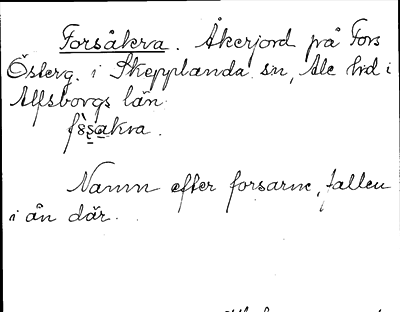 Forsåkra. Åkerjord på Fors
Österg. i Skepplanda sn, Ale hd i
Älfsborgs län.
Namn efter forsarne, fallen
i ån där.